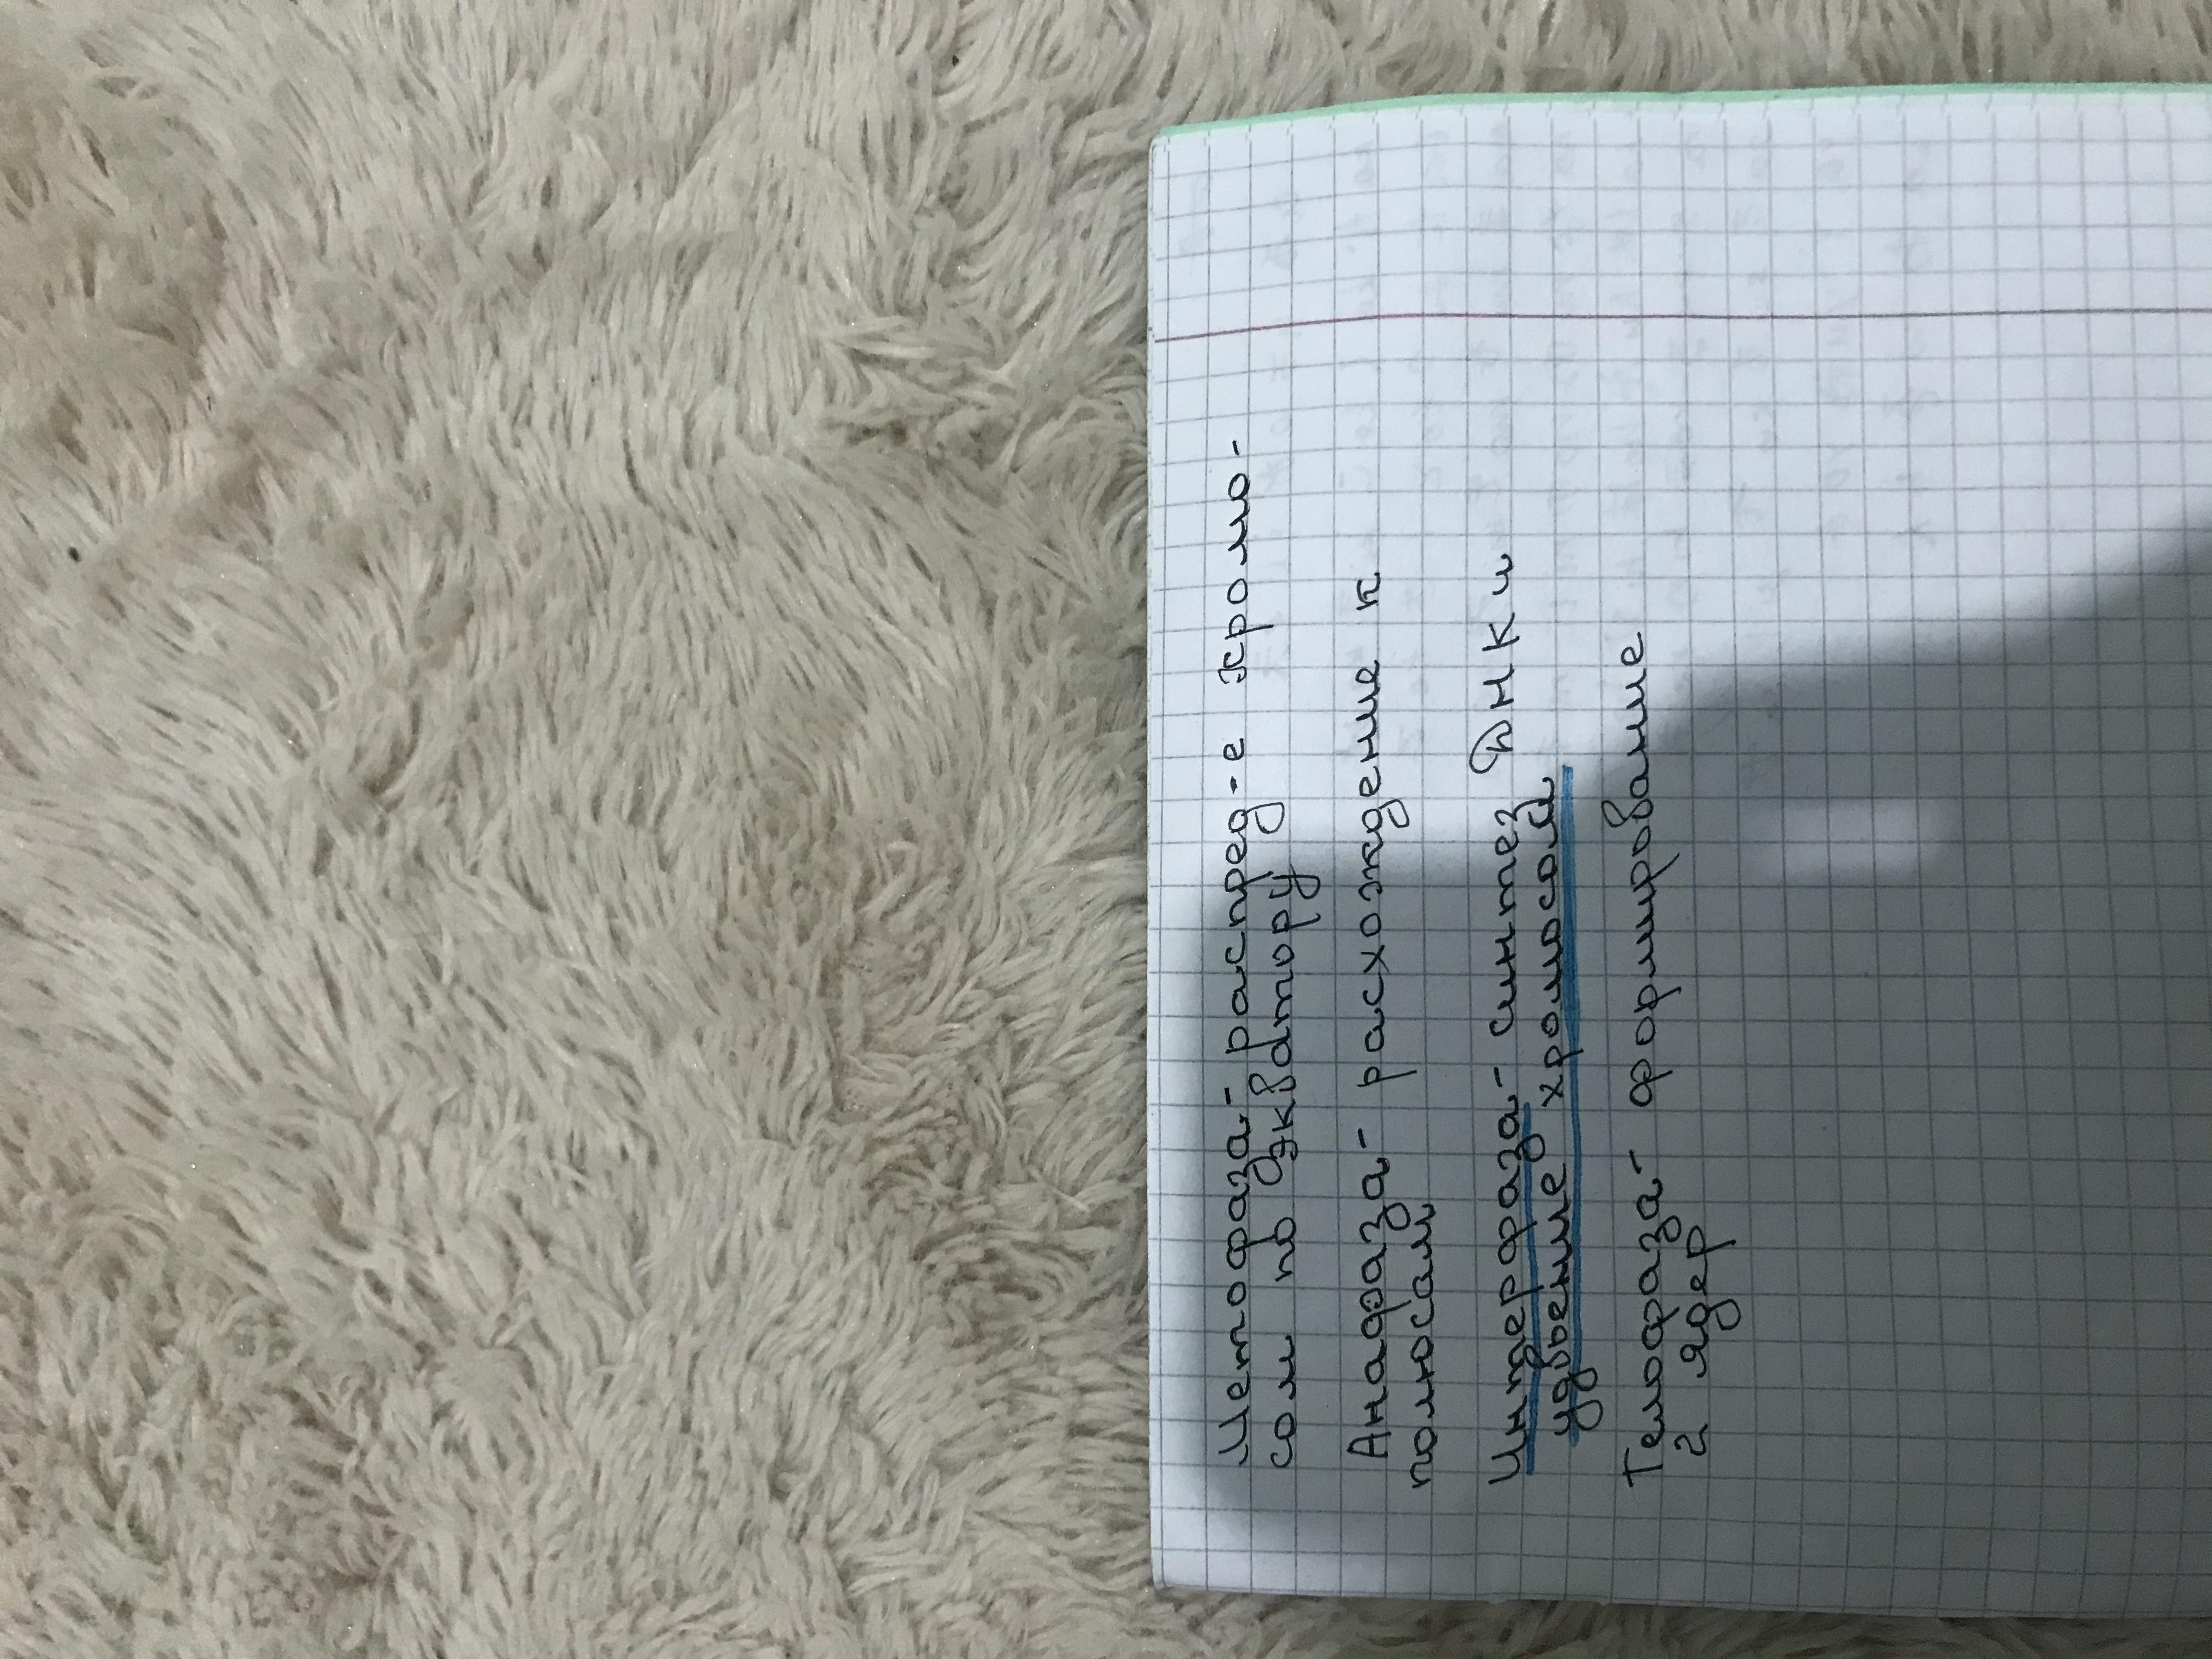 Метофаза- распред-е хромо-
сом по экватору
Анафаза- расхождение к
полюсам
Интерфаза- синтез ДНК и
удвоение хромосом
Телофаза- формирование
2 ядер